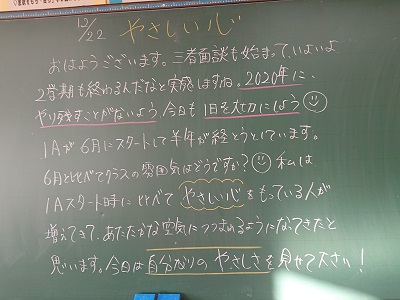 12/22 やさしい心
おはようございます。三者面談も始まって、いよいよ
2学期も終わるんだなと実感しますね。2020年に、
やり残すことがないよう、今日も1日を大切にしよう
1Aが6月にスタートして半年が経とうとしています。
6月と比べてクラスの雰囲気はどうですか？私は
1Aスタート時に比べてやさしい心をもっている人が
増えてきて、あたたかな空気につつまれるようになってきたと
思います。今日は自分なりのやさしさを見せて下さい！